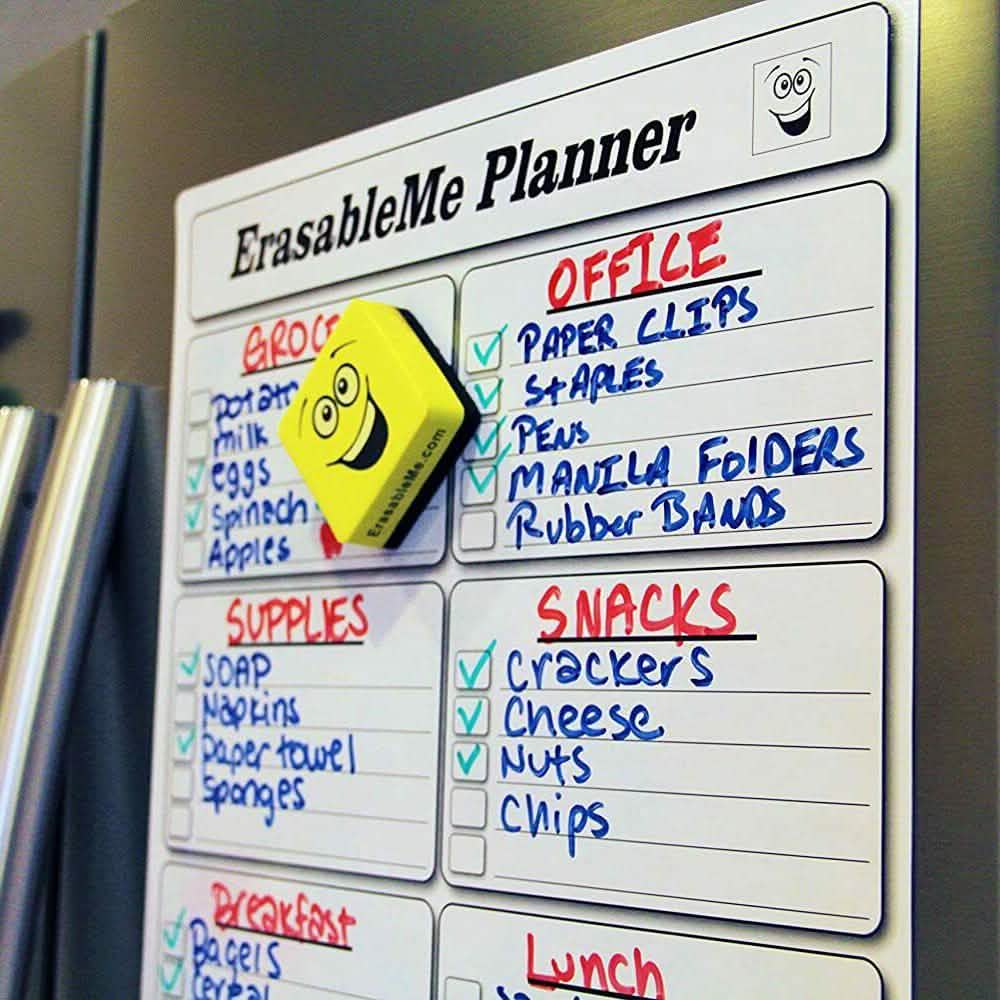 ErasableMe Planner
GROC
potat
milk
eggs
Spinach
Apples
ErasableMe.com
OFFICE
PAPER CLIPS
StAPLES
PENs
MANILA FolDERS
Rubber BANDS
SUPPLIES
SOAP
Napkins
Paper towel
Sponges
SNACKS
Crackers
Cheese
Nuts
Chips
Breakfast
Bagels
Cereal
Lunch